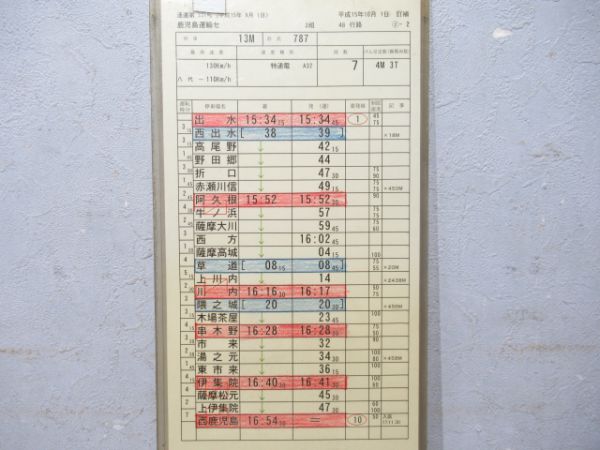 平成15年10月 1日 訂補
鹿児島運輸セ 2組 46 行路 ②- 2
列車 13M 形式 787
最高速度 速度種別
130Km/h 特通電 A32 7 4M 3T
八代 ー110Km/h
停車場名 着 発 (通) 着発線 記事
出水 15:34 15 15:34 45 1 45 75
西出水 [ 38 39 ] ×18M
高尾野 ↓ 42 15
野田郷 ↓ 44
折口 ↓ 47 30
赤瀬川信 ↓ 49 15 ×450M
阿久根 15:52 15:52 30
牛ノ浜 ↓ 57
薩摩大川 ↓ 59 45
西方 ↓ 16:02 45
薩摩高城 ↓ 04 15 100
草道 [ 08 15 08 45 ] 75 55 ×20M
上川内 ↓ 14 ×2430M
川内 16:16 30 16:17
隈之城 [ 20 20 30 ] ×450M
木場茶屋 ↓ 23 45
串木野 16:28 16:28 30
市来 ↓ 32
湯之元 ↓ 34 30 ×450M
東市来 ↓ 36 15
伊集院 16:40 30 16:41 30
薩摩松元 ↓ 45
上伊集院 ↓ 47 30
西鹿児島 16:54 30 = 10